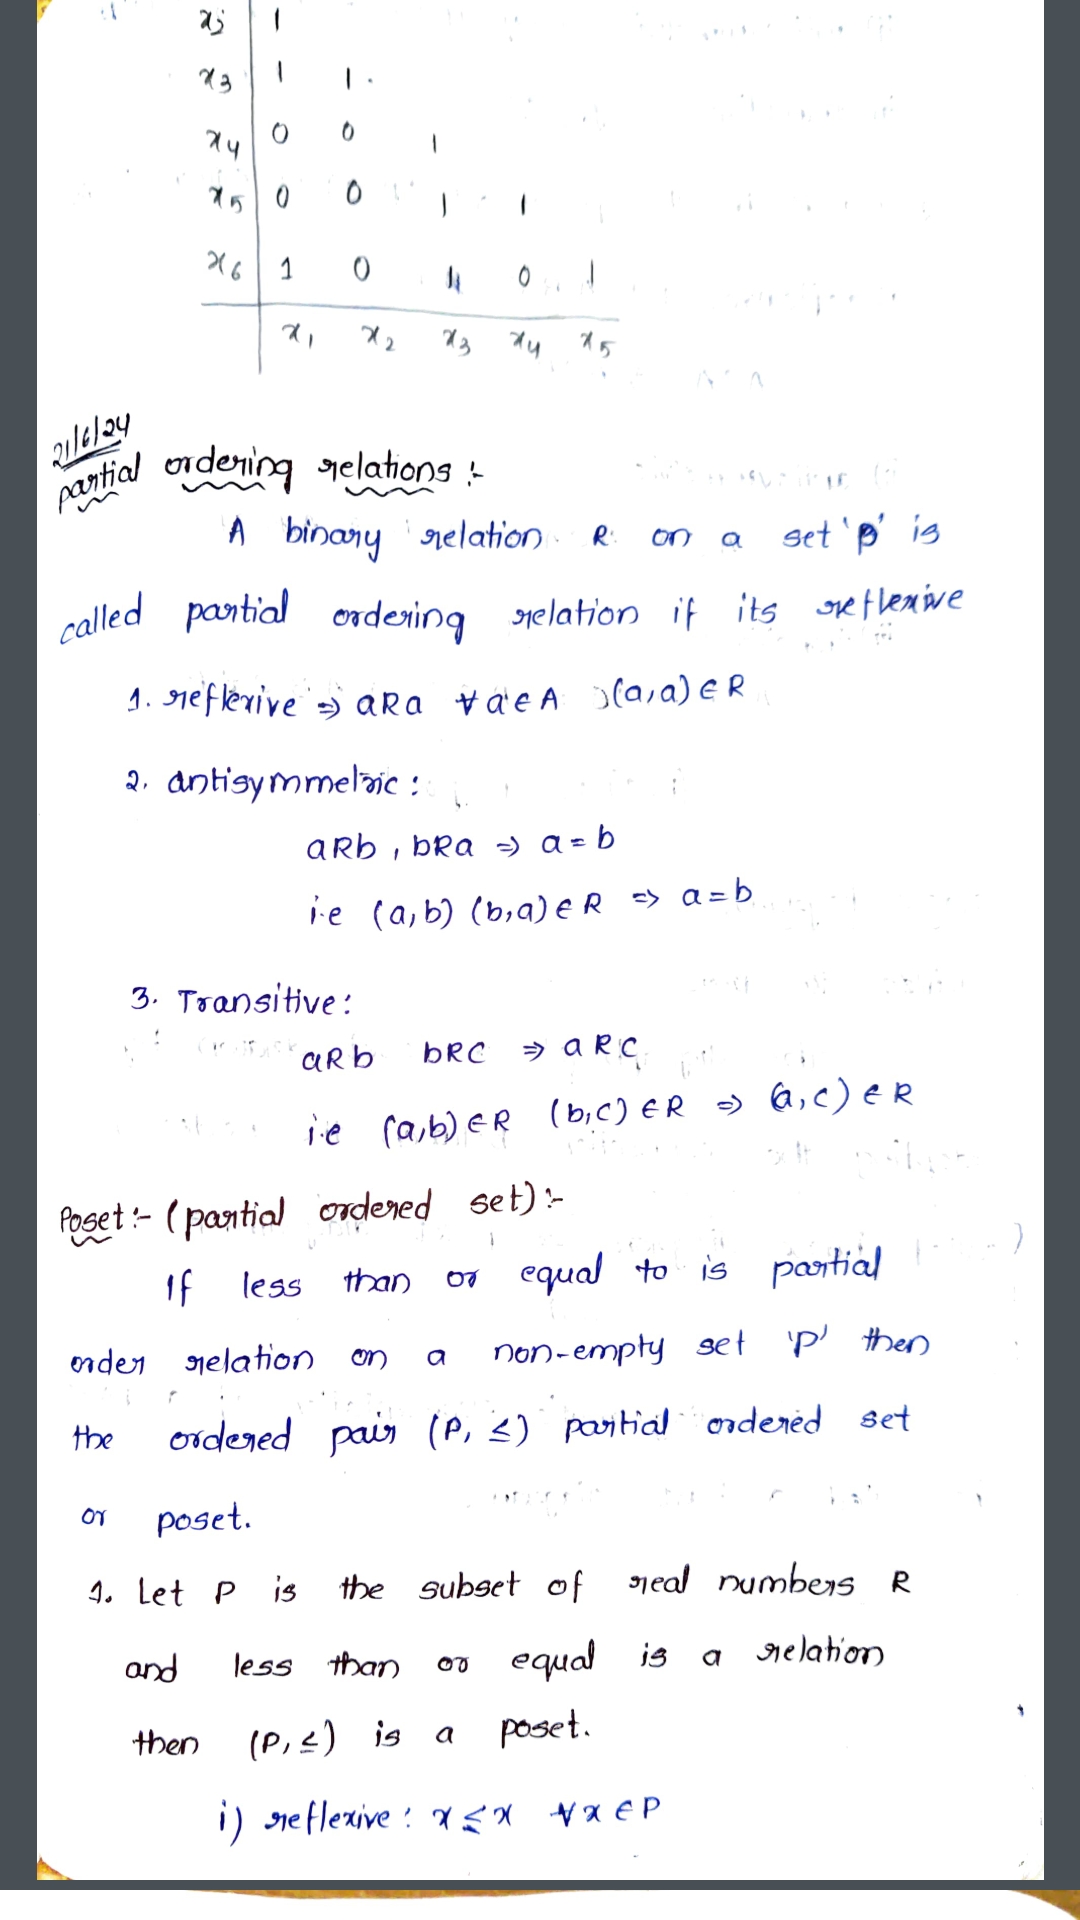 x2 1
x3 1 1
x4 0 0 1
x5 0 0 1 1
x6 1 0 1 0 1
x1 x2 x3 x4 x5
21/6/24
partial ordering relations :-
A binary relation R on a set 'P' is
called partial ordering relation if its reflexive
1. reflexive ⇒ aRa ∀ a∈A (a,a) ∈ R
2. antisymmetric :
aRb , bRa ⇒ a = b
i.e (a,b) (b,a) ∈ R ⇒ a = b
3. Transitive :
aRb bRC ⇒ aRC
i.e (a,b) ∈ R (b,c) ∈ R ⇒ (a,c) ∈ R
Poset :- (partial ordered set) :-
If less than or equal to is partial
order relation on a non-empty set 'p' then
the ordered pair (P, ≤) partial ordered set
or poset.
1. Let P is the subset of real numbers R
and less than or equal is a relation
then (P, ≤) is a poset.
i) reflexive : x ≤ x ∀ x ∈ P